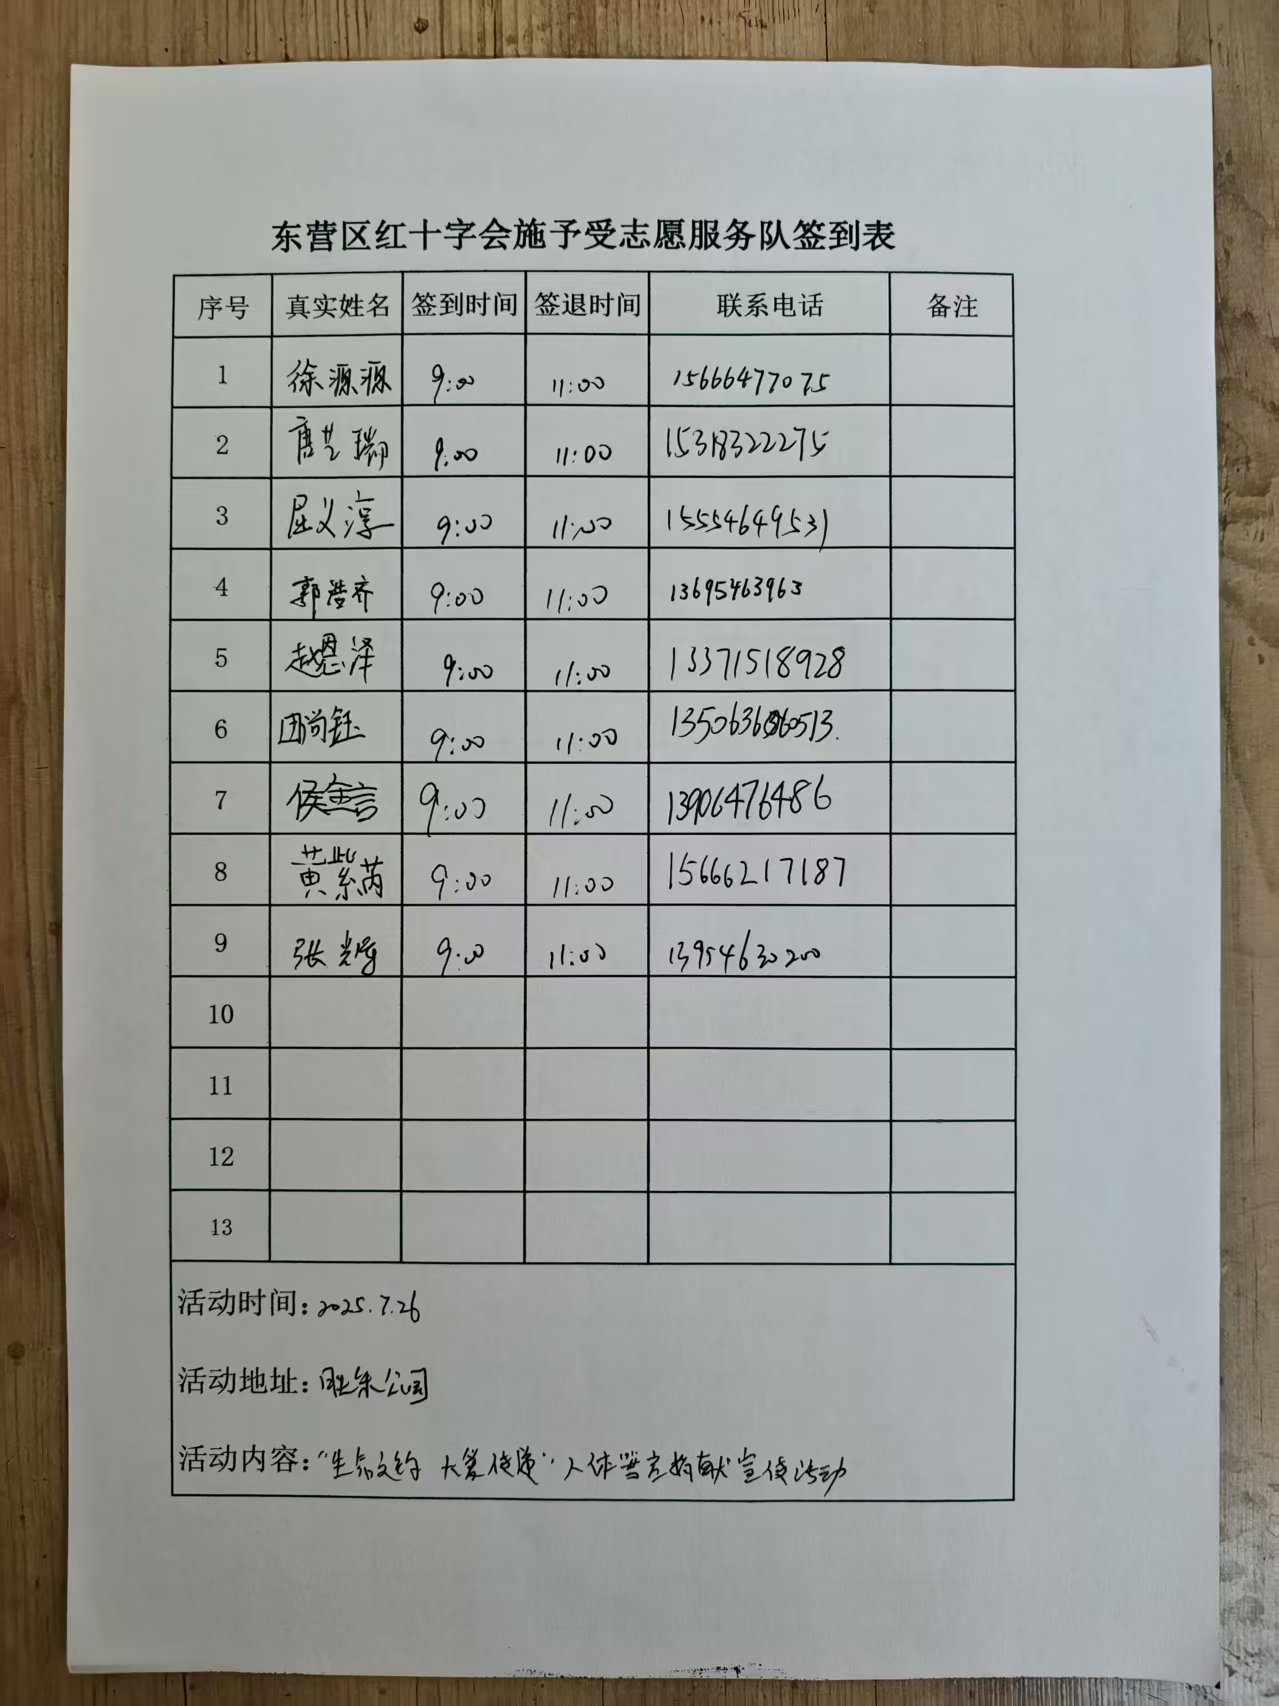 东营区红十字会施予受志愿服务队签到表
序号 真实姓名 签到时间 签退时间 联系电话 备注
1 徐源源 9:00 11:00 15666477075
2 唐艺瑞 9:00 11:00 15318322275
3 屈义淳 9:00 11:00 15554649531
4 郭浩齐 9:00 11:00 13695463963
5 赵恩泽 9:00 11:00 13371518928
6 田尚钰 9:00 11:00
7 侯 言 9:00 11:00 13906476486
8 黄紫芮 9:00 11:00 15666217187
9 张 9:00 11:00 13954630200
10
11
12
13
活动时间:2025.7.26
活动地址:胜采公司
活动内容:“生命之约 大爱传递”人体器官捐献宣传活动